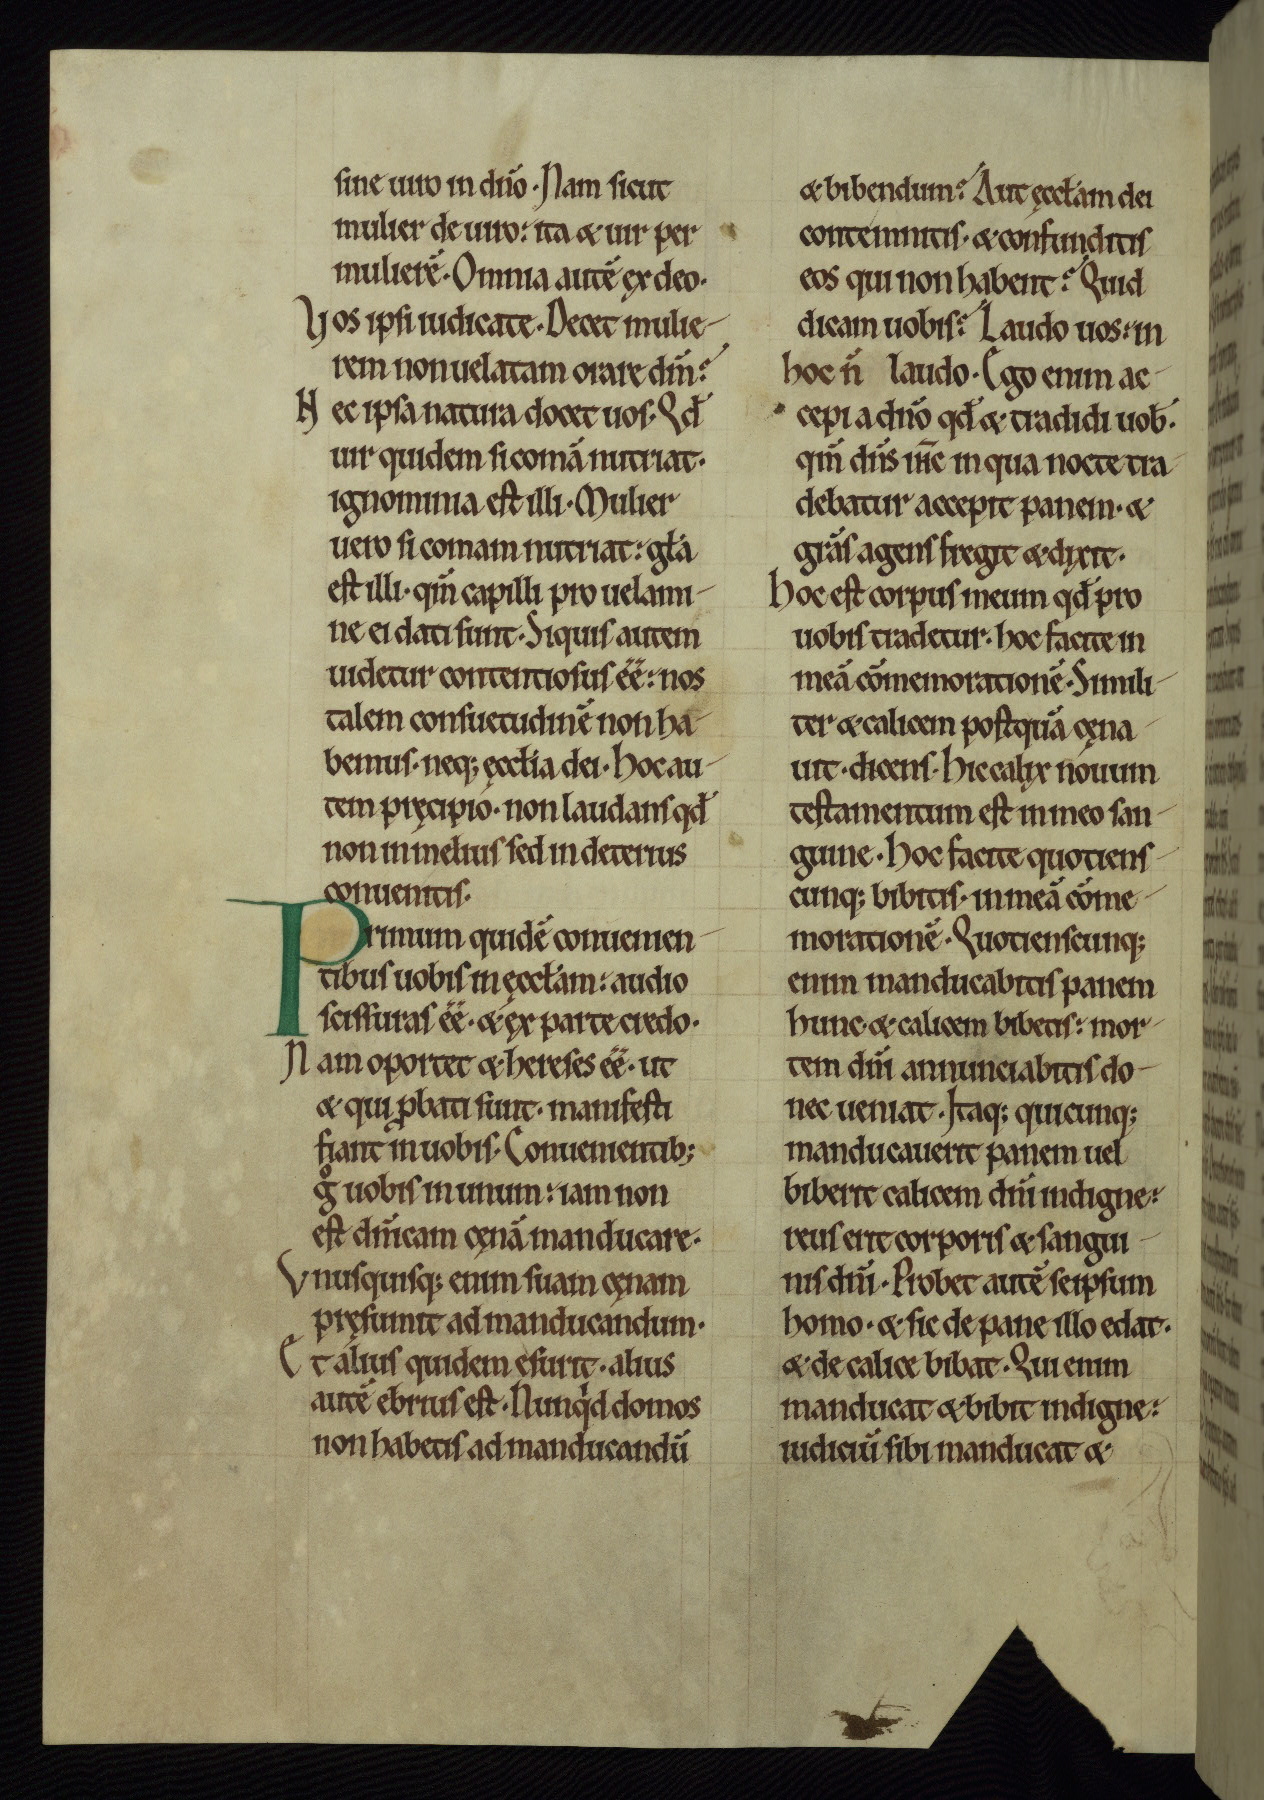 sine uiro in dño · Nam sicut
mulier de uiro: ita & uir per
mulierē · Omnia autē ex deo ·
Vos ipsi iudicate · Decet mulie-
rem non uelatam orare dm̄?
Nec ipsa natura docet uos · Qđ
uir quidem si comā nutriat ·
ignominia est illi · Mulier
uero si comam nutriat: gła
est illi · qm̄ capilli pro uelami-
ne ei dati sunt · Siquis autem
uidetur contentiosus ēē: nos
talem consuetudinē non ha-
bemus · neq; ęccłia dei · hoc au-
tem pręcipio · non laudans qđ
non in melius sed in deterius
conuenitis ·
Primum quidē conuenien-
tibus uobis in ęccłam: audio
scissuras ēē · & ex parte credo ·
Nam oportet & hereses ēē · ut
& qui ꝓbati sunt · manifesti
fiant in uobis · Conuenientib;
gͦ uobis in unum: iam non
est dm̄icam cęnā manducare ·
Vnusquisq; enim suam cęnam
pręsumit ad manducandum ·
Et alius quidem esurit · alius
autē ebrius est · Nunqͥd domos
non habetis ad manducandū
& bibendum? Aut ęccłam dei
contemnitis · & confunditis
eos qui non habent? Quid
dicam uobis? Laudo uos: in
hoc n̄ laudo · Ego enim ac-
cepi a dño qđ & tradidi uob̄ ·
qm̄ dn̄s ih̄c in qua nocte tra-
debatur accepit panem · &
grās agens fregit & dixit ·
hoc est corpus meum qđ pro
uobis tradetur · hoc facite in
meā cōmemorationē · Simili-
ter & calicem postquā cęna-
uit · dicens · hic calix nouum
testamentum est in meo san-
guine · hoc facite quotiens-
cunq; bibitis · in meā cōme-
morationē · Quotienscunq;
enim manducabitis panem
hunc · & calicem bibetis: mor-
tem dn̄i annunciabitis do-
nec ueniat · Itaq; quicunq;
manducauerit panem uel
biberit calicem dn̄i indigne:
reus erit corporis & sangui-
nis dn̄i · Probet autē seipsum
homo · & sic de pane illo edat ·
& de calice bibat · Qui enim
manducat & bibit indigne:
iudiciū sibi manducat &